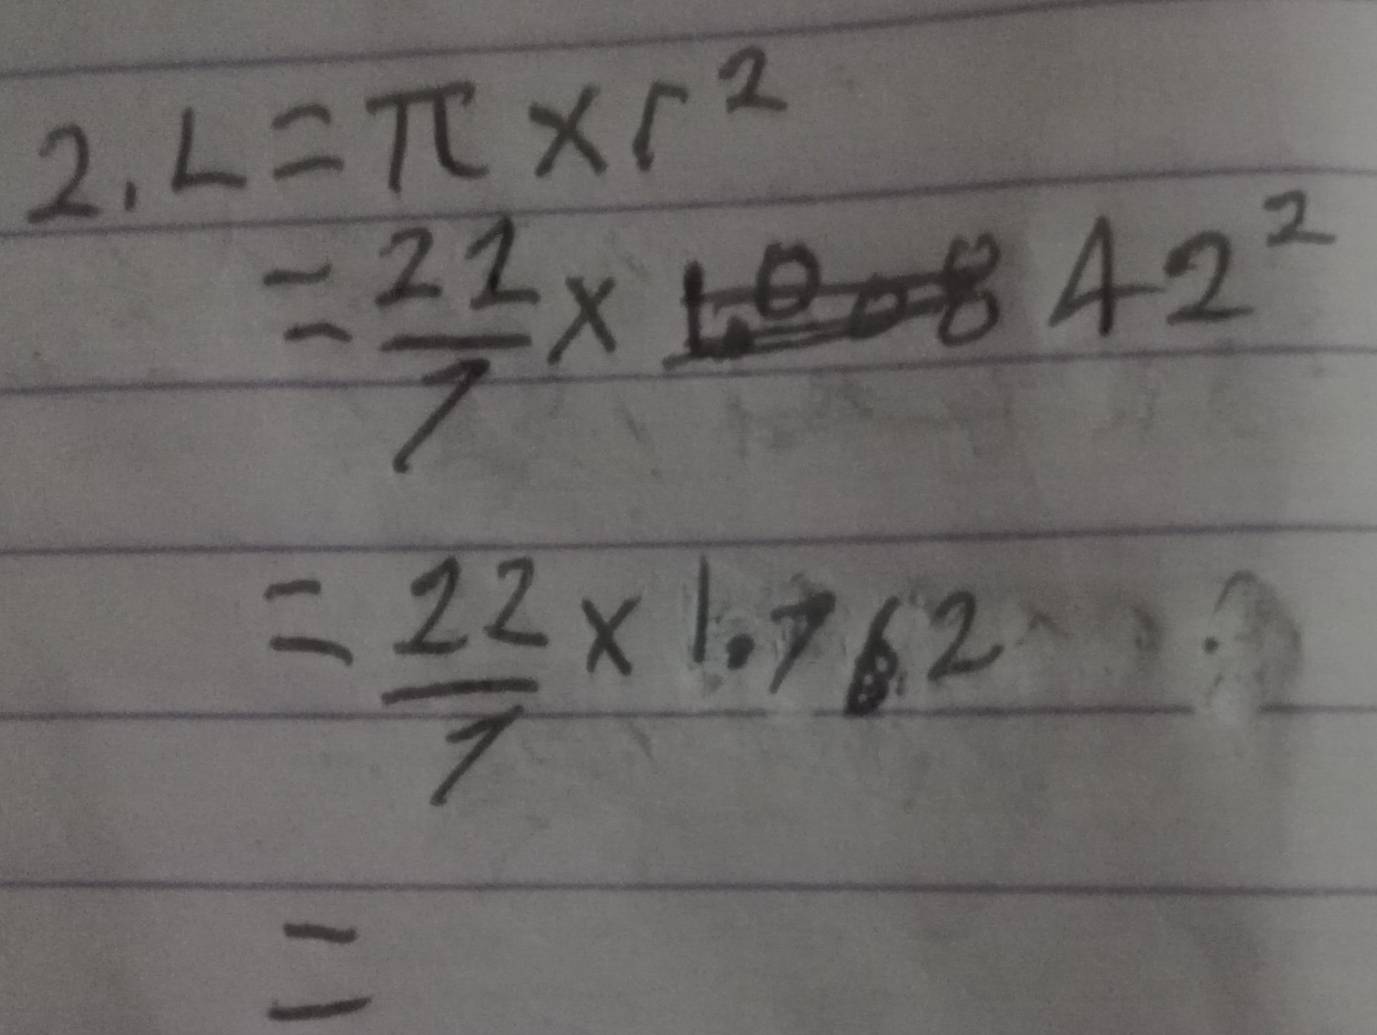 2. L = π × r²
= 22/7 × 42²
= 22/7 × 1.762
=